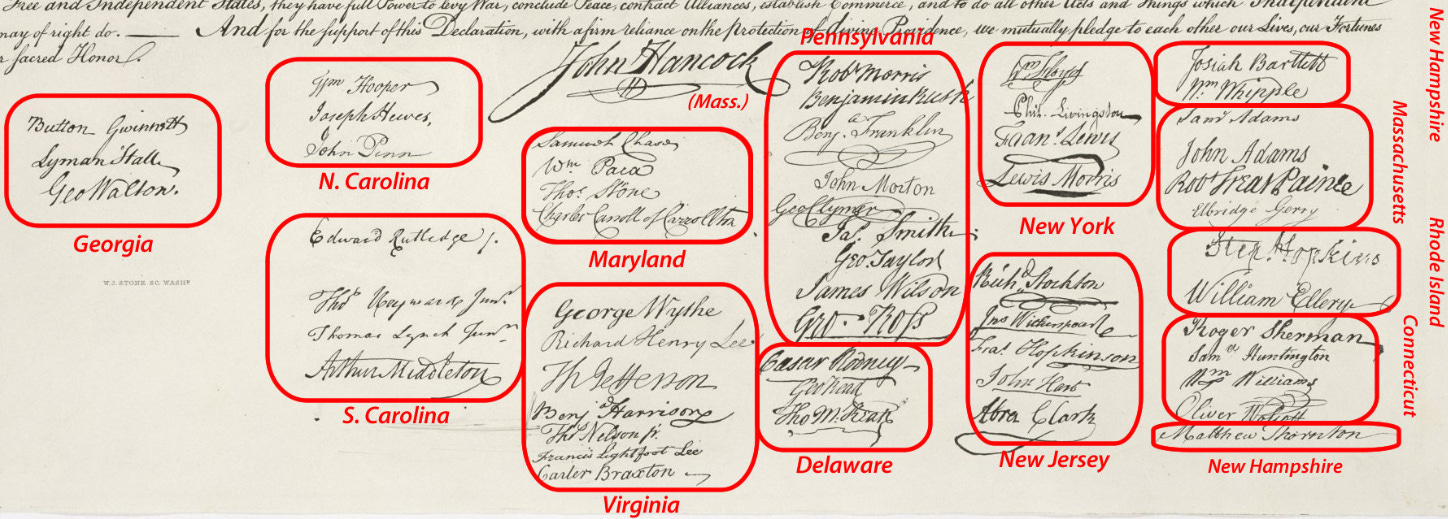 Free and Independent States, they have full Power to levy War, conclude Peace, contract Alliances, establish Commerce, and to do all other Acts and Things which Independent
may of right do. — And for the support of this Declaration, with a firm reliance on the Protection of divine Providence, we mutually pledge to each other our Lives, our Fortunes
sacred Honor.
John Hancock
(Mass.)
Button Gwinnett
Lyman Hall
Geo Walton.
Georgia
W. J. STONE SC. WASHN
Wm Hooper
Joseph Hewes,
John Penn
N. Carolina
Edward Rutledge /.
Thos Heyward Junr.
Thomas Lynch Junr.
Arthur Middleton
S. Carolina
Samuel Chase
Wm Paca
Thos Stone
Charles Carroll of Carrollton
Maryland
George Wythe
Richard Henry Lee
Th Jefferson
Benj Harrison
Thos Nelson jr.
Francis Lightfoot Lee
Carter Braxton
Virginia
Pennsylvania
Robt Morris
Benjamin Rush
Benj. Franklin
John Morton
Geo Clymer
Jas. Smith
Geo. Taylor
James Wilson
Geo. Ross
Caesar Rodney
Geo Read
Tho M:Kean
Delaware
Wm Floyd
Phil. Livingston
Frans. Lewis
Lewis Morris
New York
Richd. Stockton
Jno Witherspoon
Fras. Hopkinson
John Hart
Abra Clark
New Jersey
Josiah Bartlett
Wm Whipple
New Hampshire
Saml Adams
John Adams
Robt Treat Paine
Elbridge Gerry
Massachusetts
Step. Hopkins
William Ellery
Rhode Island
Roger Sherman
Samel Huntington
Wm Williams
Oliver Wolcott
Connecticut
Matthew Thornton
New Hampshire